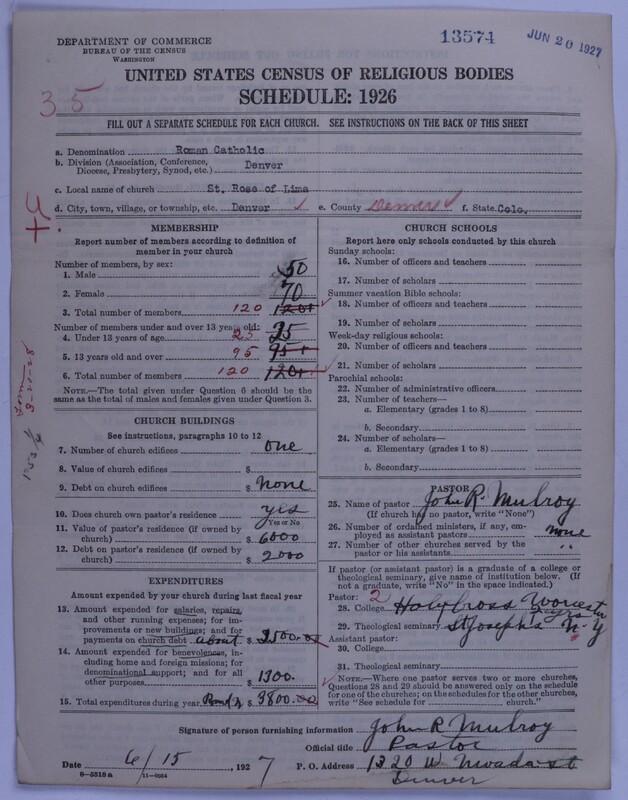 DEPARTMENT OF COMMERCE
BUREAU OF THE CENSUS
WASHINGTON
13574
JUN 20 1927
UNITED STATES CENSUS OF RELIGIOUS BODIES
SCHEDULE: 1926
35
FILL OUT A SEPARATE SCHEDULE FOR EACH CHURCH. SEE INSTRUCTIONS ON THE BACK OF THIS SHEET
a. Denomination Roman Catholic
b. Division (Association, Conference, Diocese, Presbytery, Synod, etc.) Denver
c. Local name of church St. Rose of Lima
d. City, town, village, or township, etc. Denver e. County Denver f. State Colo.
MEMBERSHIP
Report number of members according to definition of
member in your church
Number of members, by sex:
1. Male 50
2. Female 70
3. Total number of members 120 120+
Number of members under and over 13 years old:
4. Under 13 years of age 25 25
5. 13 years old and over 95 95+
6. Total number of members 120 120+
NOTE.—The total given under Question 6 should be
same as the total of males and females given under Question 3.
CHURCH BUILDINGS
See instructions, paragraphs 10 to 12
7. Number of church edifices one
8. Value of church edifices $
9. Debt on church edifices $ None
10. Does church own pastor's residence yes
Yes or No
11. Value of pastor's residence (if owned by
church) $ 6000
12. Debt on pastor's residence (if owned by
church) $ 2000
EXPENDITURES
Amount expended by your church during last fiscal year
13. Amount expended for salaries, repairs,
and other running expenses; for im-
provements or new buildings; and for
payments on church debt about $ 2500.00
14. Amount expended for benevolences, in-
cluding home and foreign missions; for
denominational support; and for all
other purposes $ 1300.
15. Total expenditures during year $ 3800.00
CHURCH SCHOOLS
Report here only schools conducted by this church
Sunday schools:
16. Number of officers and teachers
17. Number of scholars
Summer vacation Bible schools:
18. Number of officers and teachers
19. Number of scholars
Week-day religious schools:
20. Number of officers and teachers
21. Number of scholars
Parochial schools:
22. Number of administrative officers
23. Number of teachers—
a. Elementary (grades 1 to 8)
b. Secondary
24. Number of scholars—
a. Elementary (grades 1 to 8)
b. Secondary
PASTOR
25. Name of pastor John R. Mulroy
(If church has no pastor, write "None")
26. Number of ordained ministers, if any, em-
ployed as assistant pastors none
27. Number of other churches served by the
pastor or his assistants "
If pastor (or assistant pastor) is a graduate of a college or
theological seminary, give name of institution below. (If
not a graduate, write "No" in the space indicated.)
Pastor: 2
28. College Holy Cross Worcester
29. Theological seminary St Joseph's N. Y
Assistant pastor:
30. College
31. Theological seminary
NOTE.—Where one pastor serves two or more churches,
Questions 28 and 29 should be answered only on the schedule
for one of the churches; on the schedules for the other churches,
write "See schedule for church."
Signature of person furnishing information John R Mulroy
Official title Pastor
Date 6/15, 1927 P. O. Address 1320 W Nevada st
Denver
8-5318a 11-9054